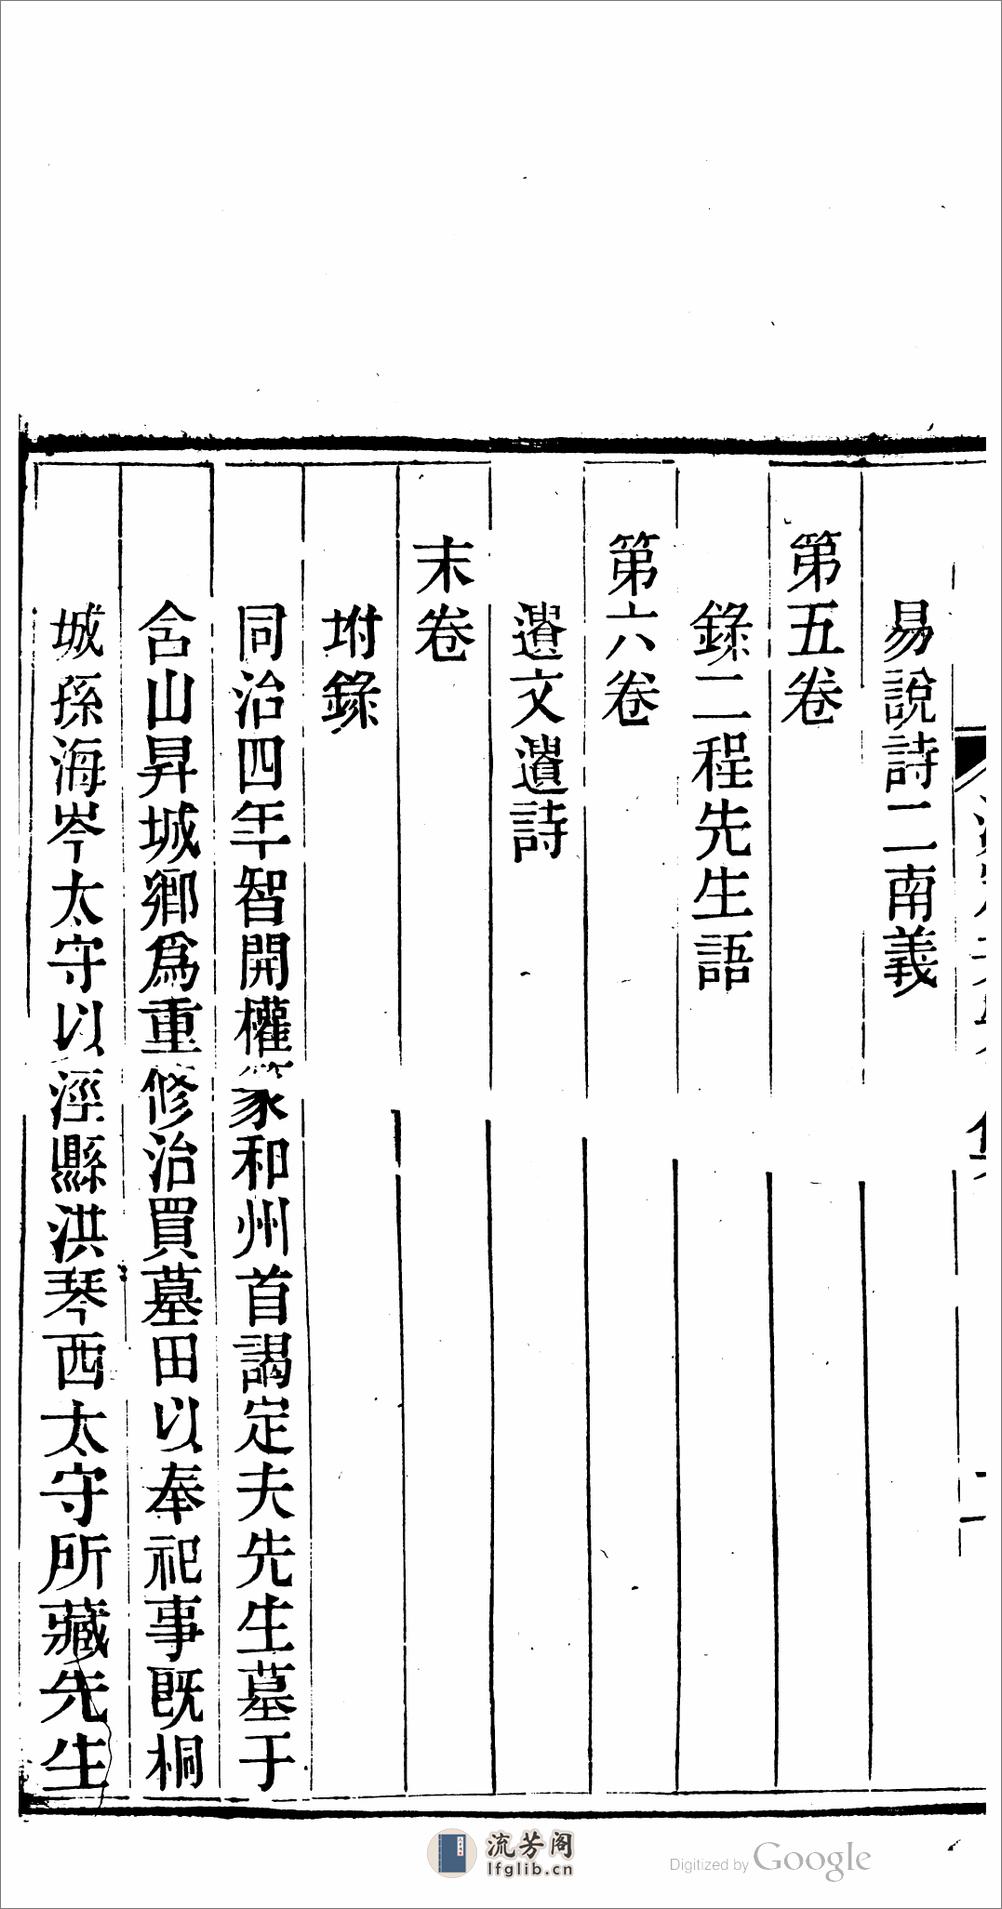 易說詩二南義
第五卷
錄二程先生語
第六卷
遺文遺詩
末卷
坿錄
同治四年智開權篆和州首謁定夫先生墓于
含山昇城鄉爲重修治買墓田以奉祀事既桐
城孫海岑太守以涇縣洪琴西太守所藏先生
流芳阁
lfglib.cn
Digitized by Google